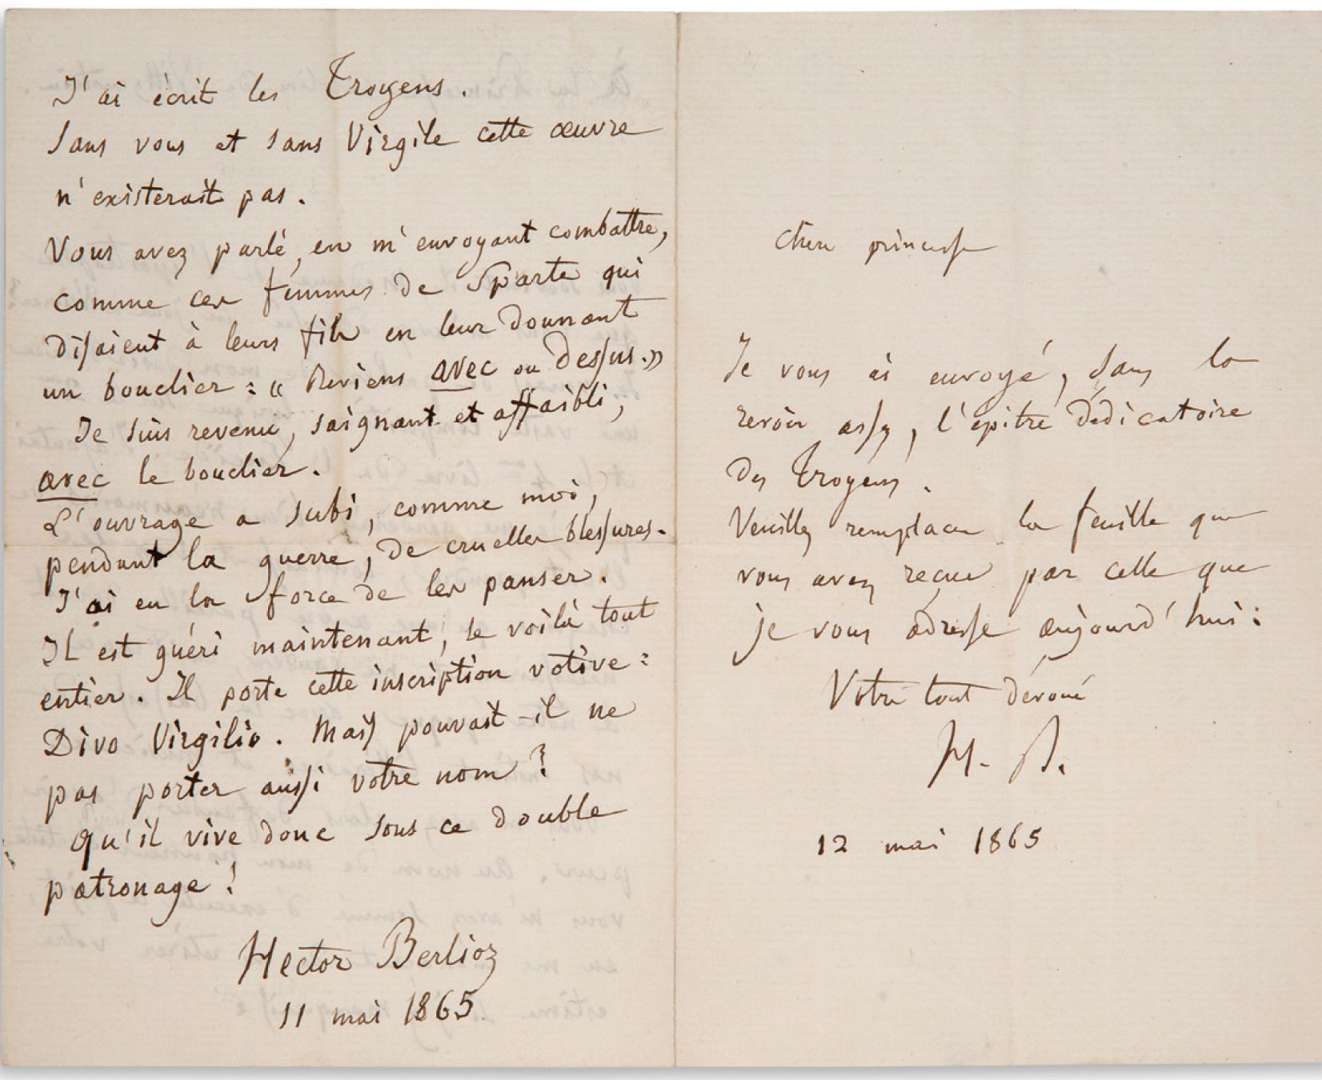 J'ai écrit les Troyens.
Sans vous et sans Virgile cette œuvre
n'existerait pas.
Vous avez parlé, en m'envoyant combattre,
comme ces femmes de Sparte qui
disaient à leurs fils en leur donnant
un bouclier : « Reviens avec ou dessus. »
Je suis revenu, saignant et affaibli,
avec le bouclier.
L'ouvrage a subi, comme moi,
pendant la guerre, de cruelles blessures.
J'ai eu la force de les panser.
Il est guéri maintenant, le voilà tout
entier. Il porte cette inscription votive :
Divo Virgilio. Mais pouvait-il ne
pas porter aussi votre nom ?
Qu'il vive donc sous ce double
patronage !
Hector Berlioz
11 mai 1865.
Chère princesse
Je vous ai envoyé, sans la
revoir assez, l'épitre dédicatoire
des Troyens.
Veuillez remplacer la feuille que
vous avez reçue par celle que
je vous adresse aujourd'hui :
Votre tout dévoué
H. B.
12 mai 1865